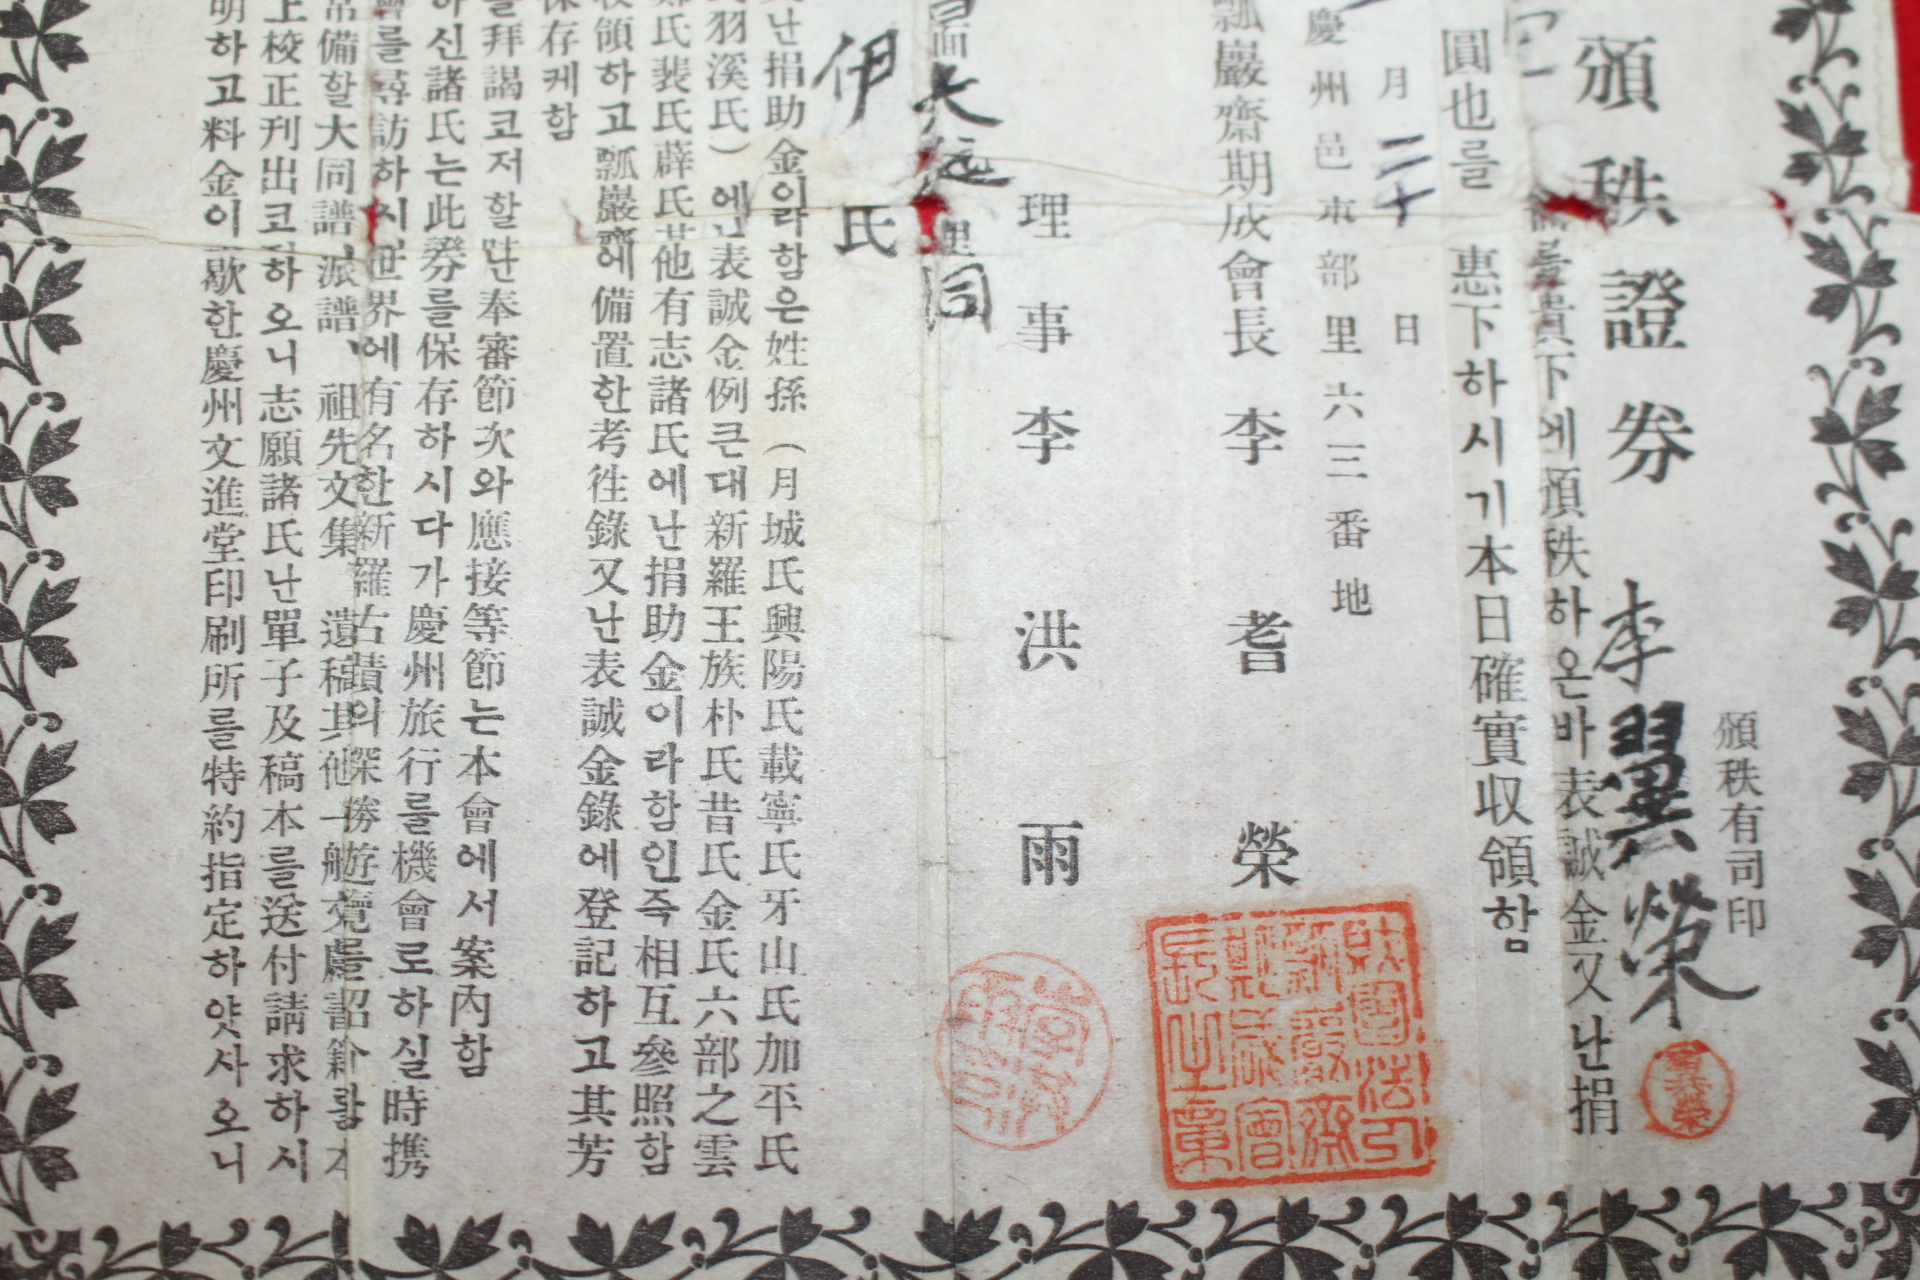 頒秩證券
頒秩有司印
李翼榮
貴下에頒秩하온바表誠金又난捐
圓也를 惠下하시기本日確實収領함
月二十日
慶州邑市部里六三番地
瓢巖齋期成會長 李耆榮
理事 李洪雨
面
里同
伊 氏
난捐助金이라함은姓孫(月城氏興陽氏載寧氏牙山氏加平氏
羽溪氏)에난表誠金例큰대新羅王族朴氏昔氏金氏六部之雲
氏裴氏薛氏其他有志諸氏에난捐助金이라함인즉相互參照함
領하고瓢巖齋에備置한考徃錄又난表誠金錄에登記하고其芳
保存케함
를拜謁코저할때난奉審節次와應接等節는本會에서案內함
하신諸氏는此券를保存하시다가慶州旅行를機會로하실時携
會를尋訪하시면世界에有名한新羅古蹟의探勝遊覽를紹介함
常備할大同譜、派譜、祖先文集 遺稿其他一般文
上校正刊出코저하오니志願諸氏난單子及稿本를送付請求하시
明하고料金이歇한慶州文進堂印刷所를特約指定하얏사오니